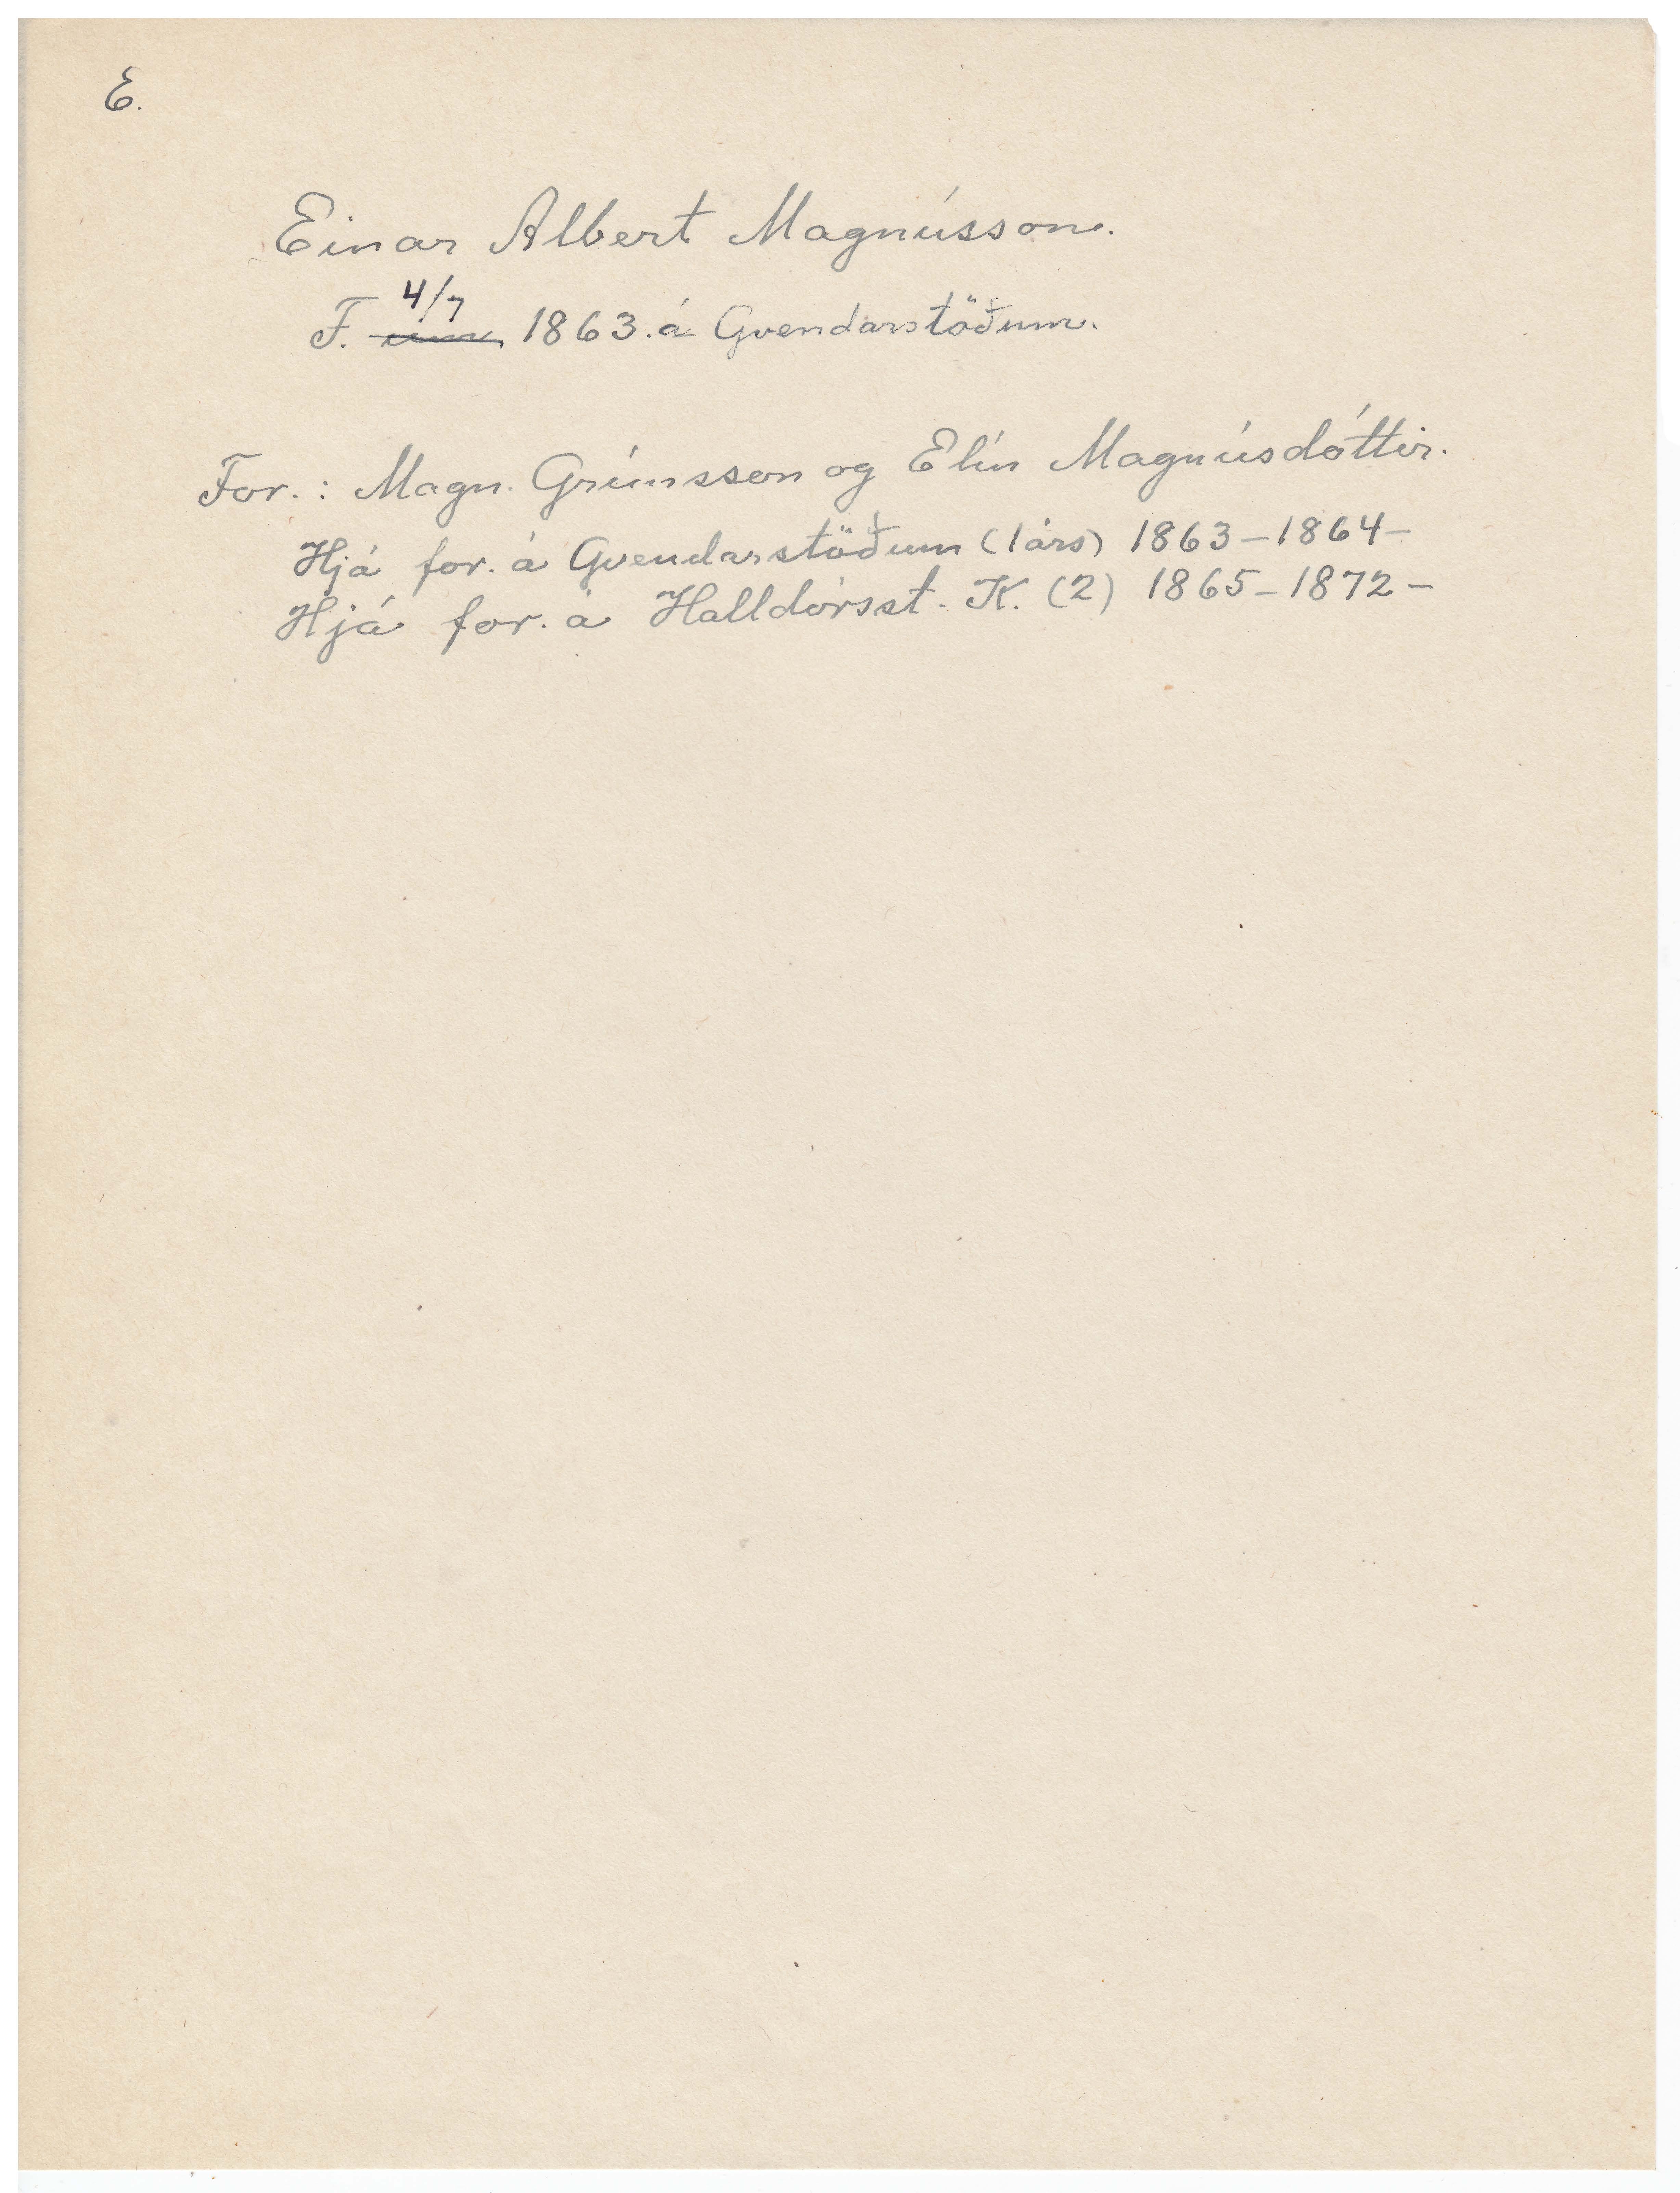 E.
Einar Albert Magnússon.
4/7
F. um 1863. á Gvendarstöðum.
For.: Magn. Grímsson og Elín Magnúsdóttir.
Hjá for. á Gvendarstöðum (1 árs) 1863-1864-
Hjá for. á Halldórsst. K. (2) 1865-1872-